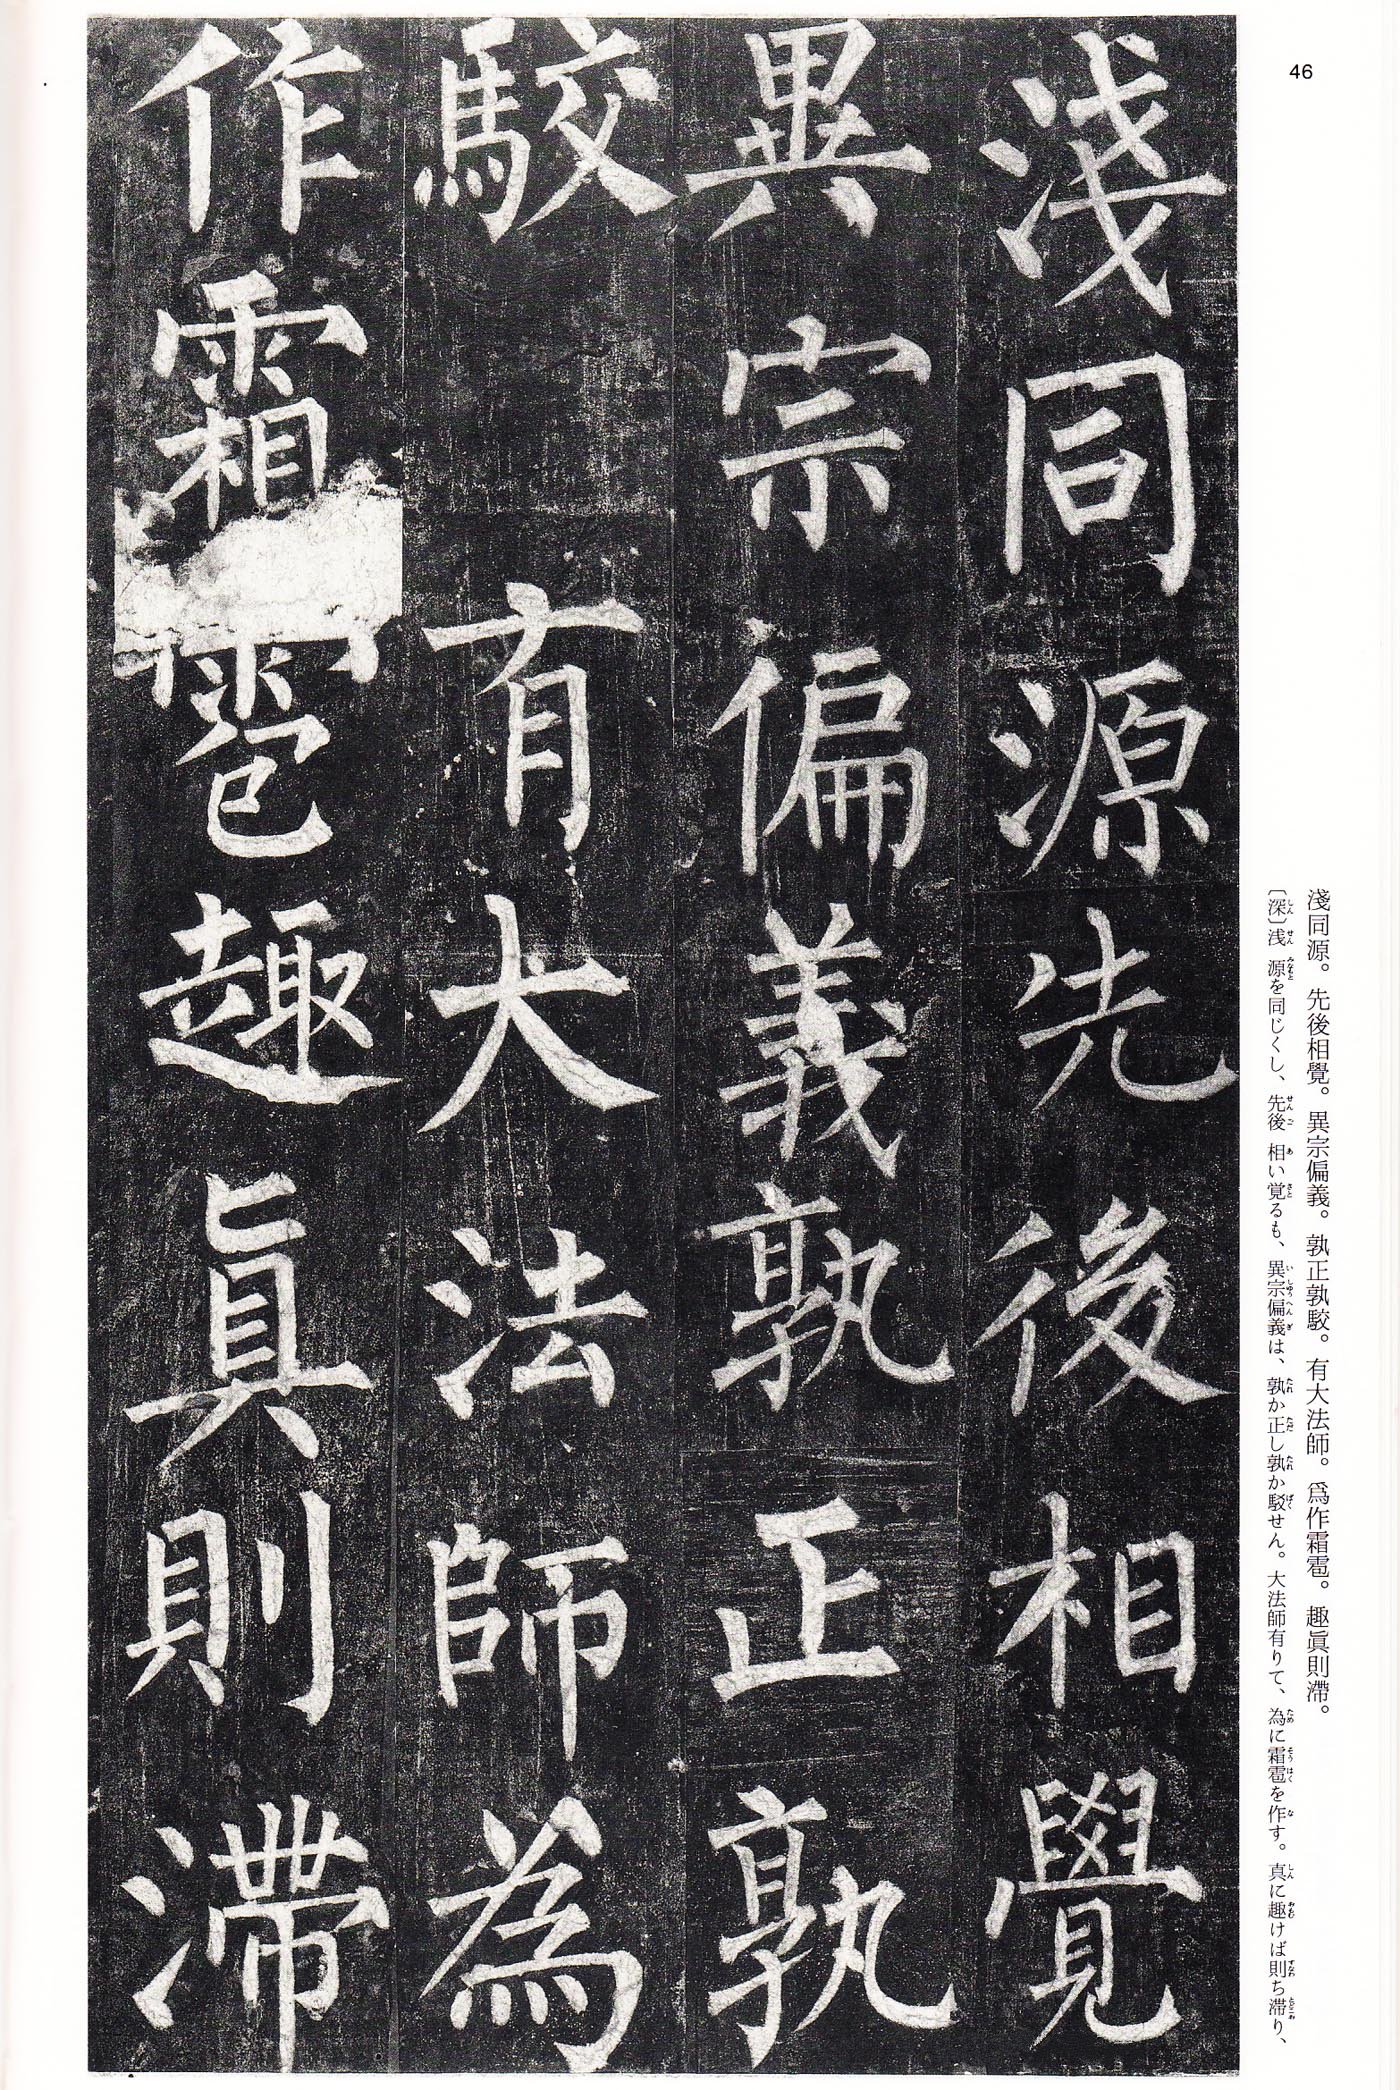 46
淺同源。先後相覺。異宗偏義。孰正孰駮。有大法師。爲作霜雹。趣眞則滯。
〔深〕浅 源を同じくし、先後 相い覚るも、異宗偏義は、孰か正し孰か駁せん。大法師有りて、為に霜雹を作す。真に趣けば則ち滞り、
淺同源先後相覺
異宗偏義孰正孰
駮有大法師為
作霜雹趣眞則滯